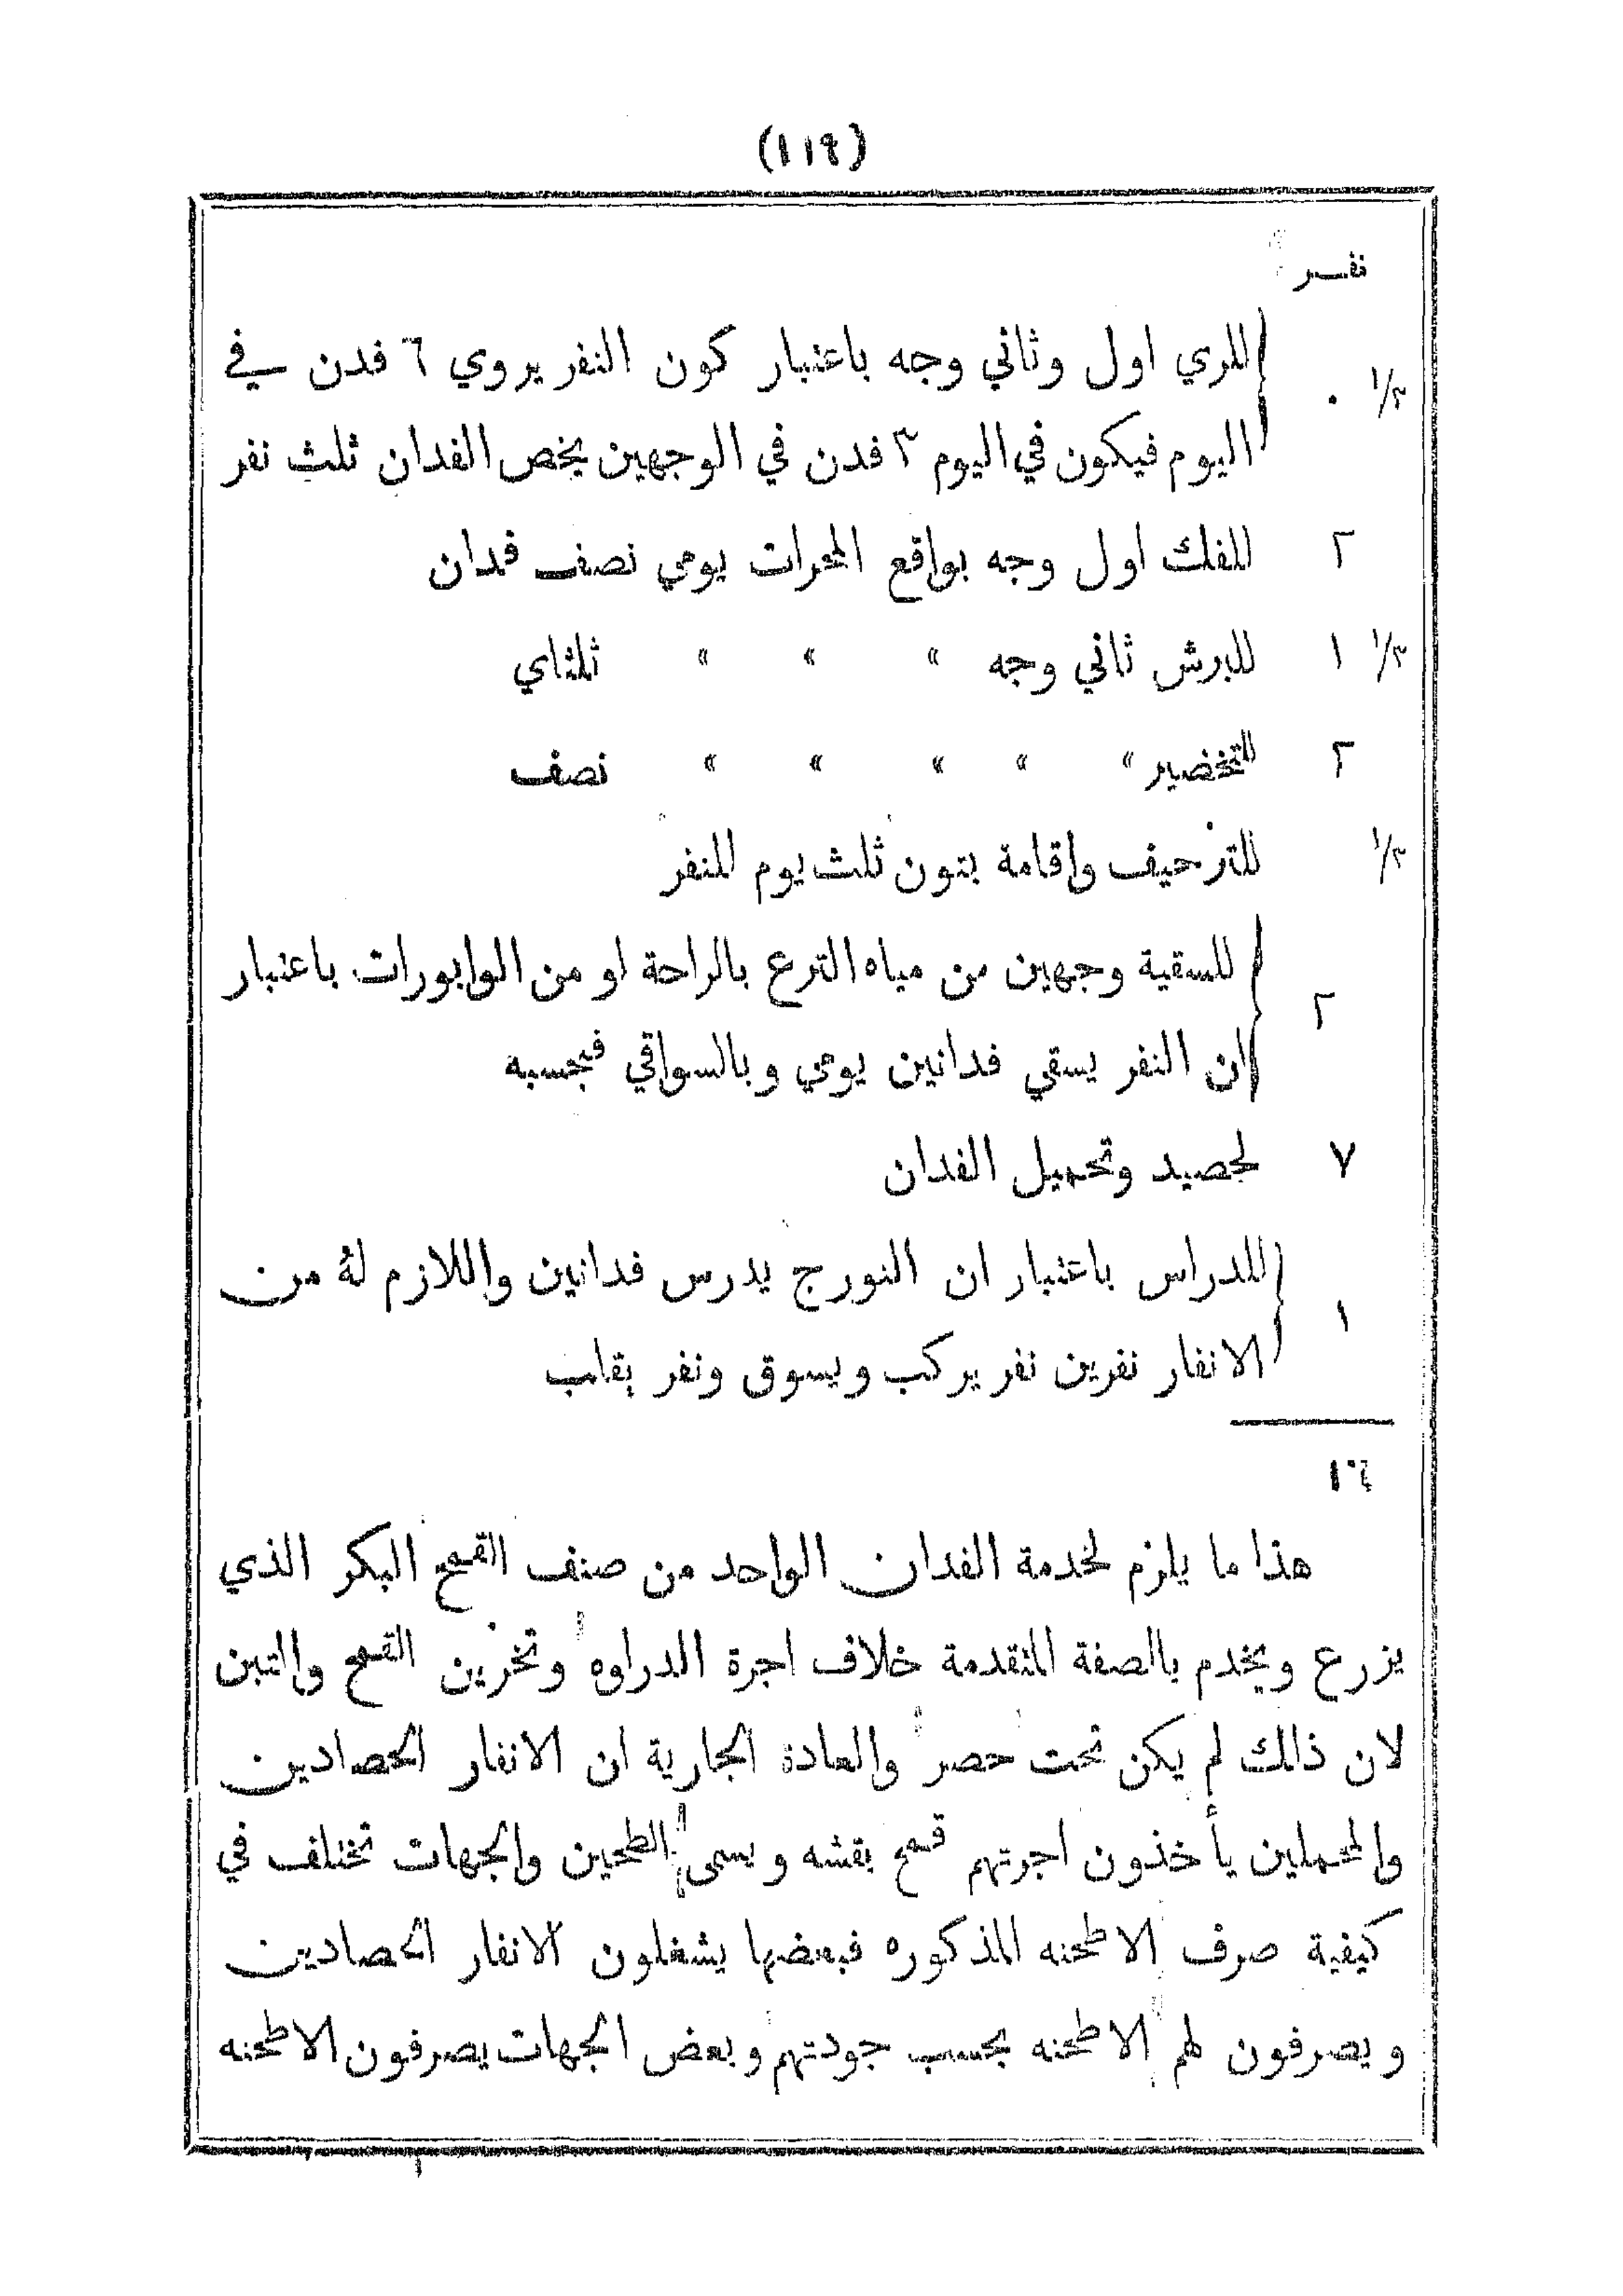 (١١٩)
نفر
٠ ١/٣ للري اول وثاني وجه باعتبار كون النفر يروي ٦ فدن في
اليوم فيكون في اليوم ٣ فدن في الوجهين يخص الفدان ثلث نفر
٢ للفلك اول وجه بواقع المحرات يومي نصف فدان
١ ١/٣ للبرش ثاني وجه » » » ثلثاي
٢ للتخضير » » » » » نصف
١/٣ للتزحيف واقامة بتون ثلث يوم للنفر
٢ للسقية وجهين من مياه الترع بالراحة او من الوابورات باعتبار
ان النفر يسقي فدانين يومي وبالسواقي فبحسبه
٧ لحصيد وتحميل الفدان
١ للدراس باعتبار ان النورج يدرس فدانين واللازم لهُ من
الانفار نفرين نفر يركب ويسوق ونفر يقلب
١٦
هذا ما يلزم لخدمة الفدان الواحد من صنف القمح البكر الذي
يزرع ويخدم بالصفة المتقدمة خلاف اجرة الدراوه وتخزين القمح والتبن
لان ذلك لم يكن تحت حصر والعادة الجارية ان الانفار الحصادين
والمحملين يأخذون اجرتهم قمح بقشه ويسمى الطحين والجهات تختلف في
كيفية صرف الاطحنه المذكوره فبعضها يشغلون الانفار الحصادين
ويصرفون لهم الاطحنه بحسب جودتهم وبعض الجهات يصرفون الاطحنه